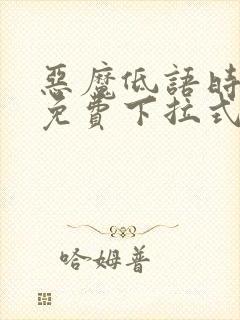 惡魔低語時
免費下拉式
哈姆普